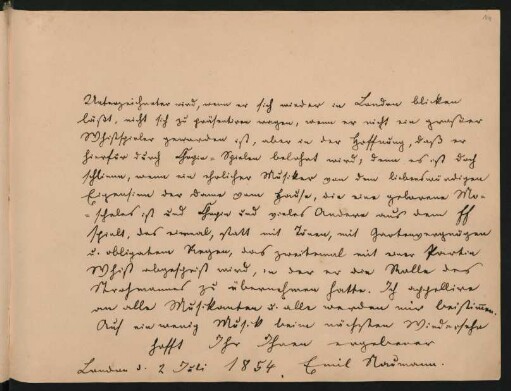 Unterzeichneter wird, wenn er sich wieder in London blicken
läßt, nicht sich zu präsentiren wagen, wenn er nicht ein großer
Whistspieler geworden ist, aber in der Hoffnung, daß er
hierfür durch Chopin-Spielen belohnt wird; denn es ist doch
schlimm, wenn ein ehrlicher Musiker von dem liebenswürdigen
Eigensinn der Dame vom Hause, die eine geborene Mo-
-scheles ist und Chopin und vieles Andere aus dem ff
spielt, das einemal, statt mit Tönen, mit Gartenvergnügen
u. obligatem Regen, das zweitemal mit einer Partie
Whist abgespeist wird, in der er die Rolle des
Strohmannes zu übernehmen hatte. Ich appellire
an alle Musikanten u. alle werden mir beistimmen.
Auf ein wenig Musik beim nächsten Wiedersehn
hofft Ihr Ihnen ergebener
London d. 2 Juli 1854. Emil Naumann.